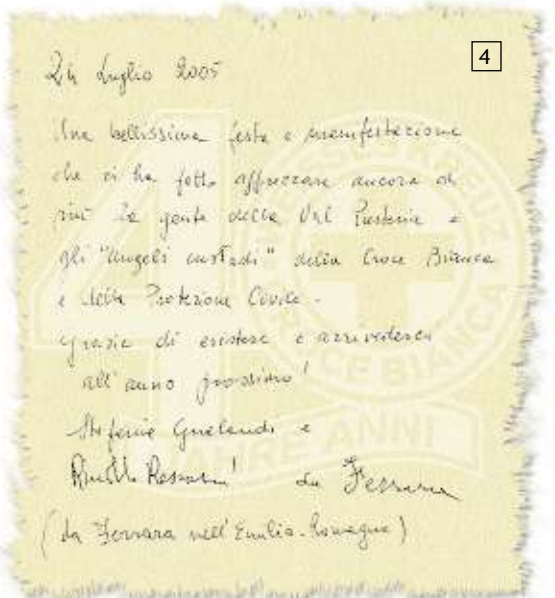 4
24 Luglio 2005
Una bellissima festa e manifestazione
che ci ha fatto apprezzare ancora di
più la gente della Val Pusteria e
gli "angeli custodi" della Croce Bianca
e della Protezione Civile.
Grazie di esistere e arrivederci
all'anno prossimo!
Stefania Guelandi e
da Ferrara
(da Ferrara nell'Emilia-Romagna)
40
WEISSES KREUZ
CROCE BIANCA
JAHRE ANNI